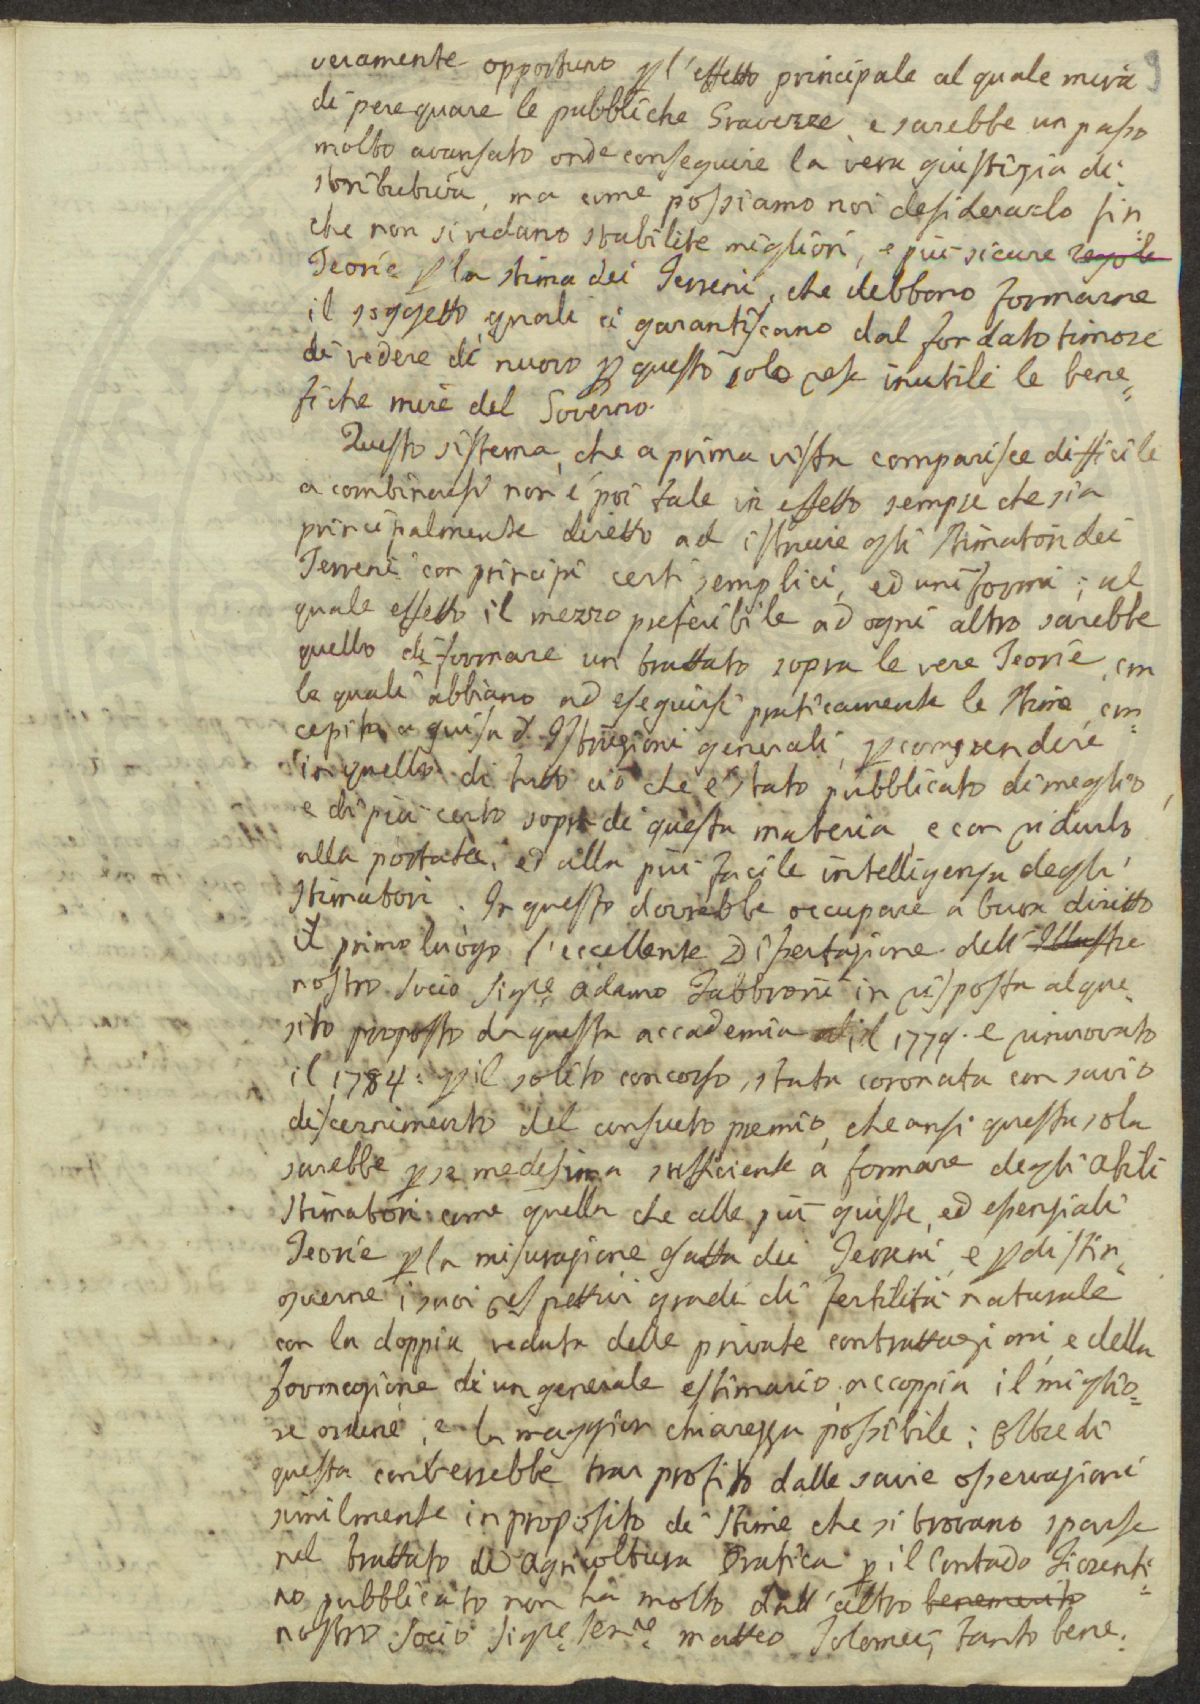 veramente opportuno p l'effetto principale al quale mira 9
di perequare le pubbliche Gravezze, e sarebbe un passo
molto avansato onde conseguire la vera giustizia di:
stributiva, ma come possiamo noi desiderarlo fin:
che non si vedano stabilite migliori, e più sicure regole
Teorie p la stima dei Terreni, che debbono formarne
il soggetto quali ci garantiscano dal fondato timore
di vedere di nuovo p questo solo rese inutili le bene:
fiche mire del Governo.
Questo sistema, che a prima vista comparisce difficile
a combinarsi non è poi tale in effetto sempre che sia
principalmente diretto ad istruire gli stimatori dei
Terreni con principi certi semplici, ed uniformi; al
quale effetto il mezzo preferibile ad ogni altro sarebbe
quello di formare un trattato sopra le vere Teorie, con
le quali abbiano ad eseguirsi praticamente le stime, con:
cepito a guisa d'Istruzioni generali, p comprendere
in quello di tutto ciò che è stato pubblicato di meglio,
e di più certo sopra di questa materia, e con ridurlo
alla portata, ed alla più facile intelligenza degli
stimatori. In questo dovrebbe occupare a buon diritto
il primo luogo l'eccellente Dissertazione dell' Illustre
nostro socio Sigre Adamo Fabbroni in risposta al que:
sito proposto da questa accademia il 1779. e rinnovato
il 1784: p il solito concorso, stata coronata con savio
discernimento del consueto premio, che anzi questa sola
sarebbe p se medesima sufficiente a formare degli abili
stimatori come quella che alle più giuste, ed essenziali
Teorie p la misurazione esatta dei Terreni, e p distin:
guerne i suoi respettivi gradi di fertilità naturale
con la doppia veduta delle private contrattazioni, e della
formazione di un generale estimario accoppia il miglio:
re ordine, e la maggior chiarezza possibile: Oltre di
questa converrebbe trar profitto dalle savie osservazioni
similmente in proposito di stime che si trovano sparse
nel trattato di agricoltura Pratica p il Contado Fiorenti:
no pubblicato non ha molto dall'altro benemerito
nostro Socio Sigre Matteo Tolomei, tanto bene: